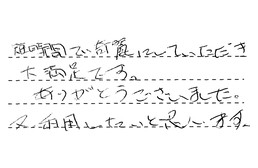 短時間で綺麗にしていただき
大満足です。
ありがとうございました。
又利用したいと思います。